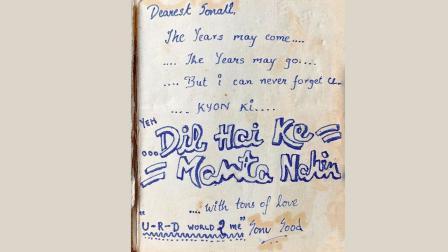 Dearest Sonali,
The Years may come....
.... The Years may go....
.... But i can never forget u..
.... KYON Ki....
YEH
...Dil Hai Ke =
= Manta Nahin
.... with tons of love
"U-R-D WORLD 2 ME" Sonu Sood